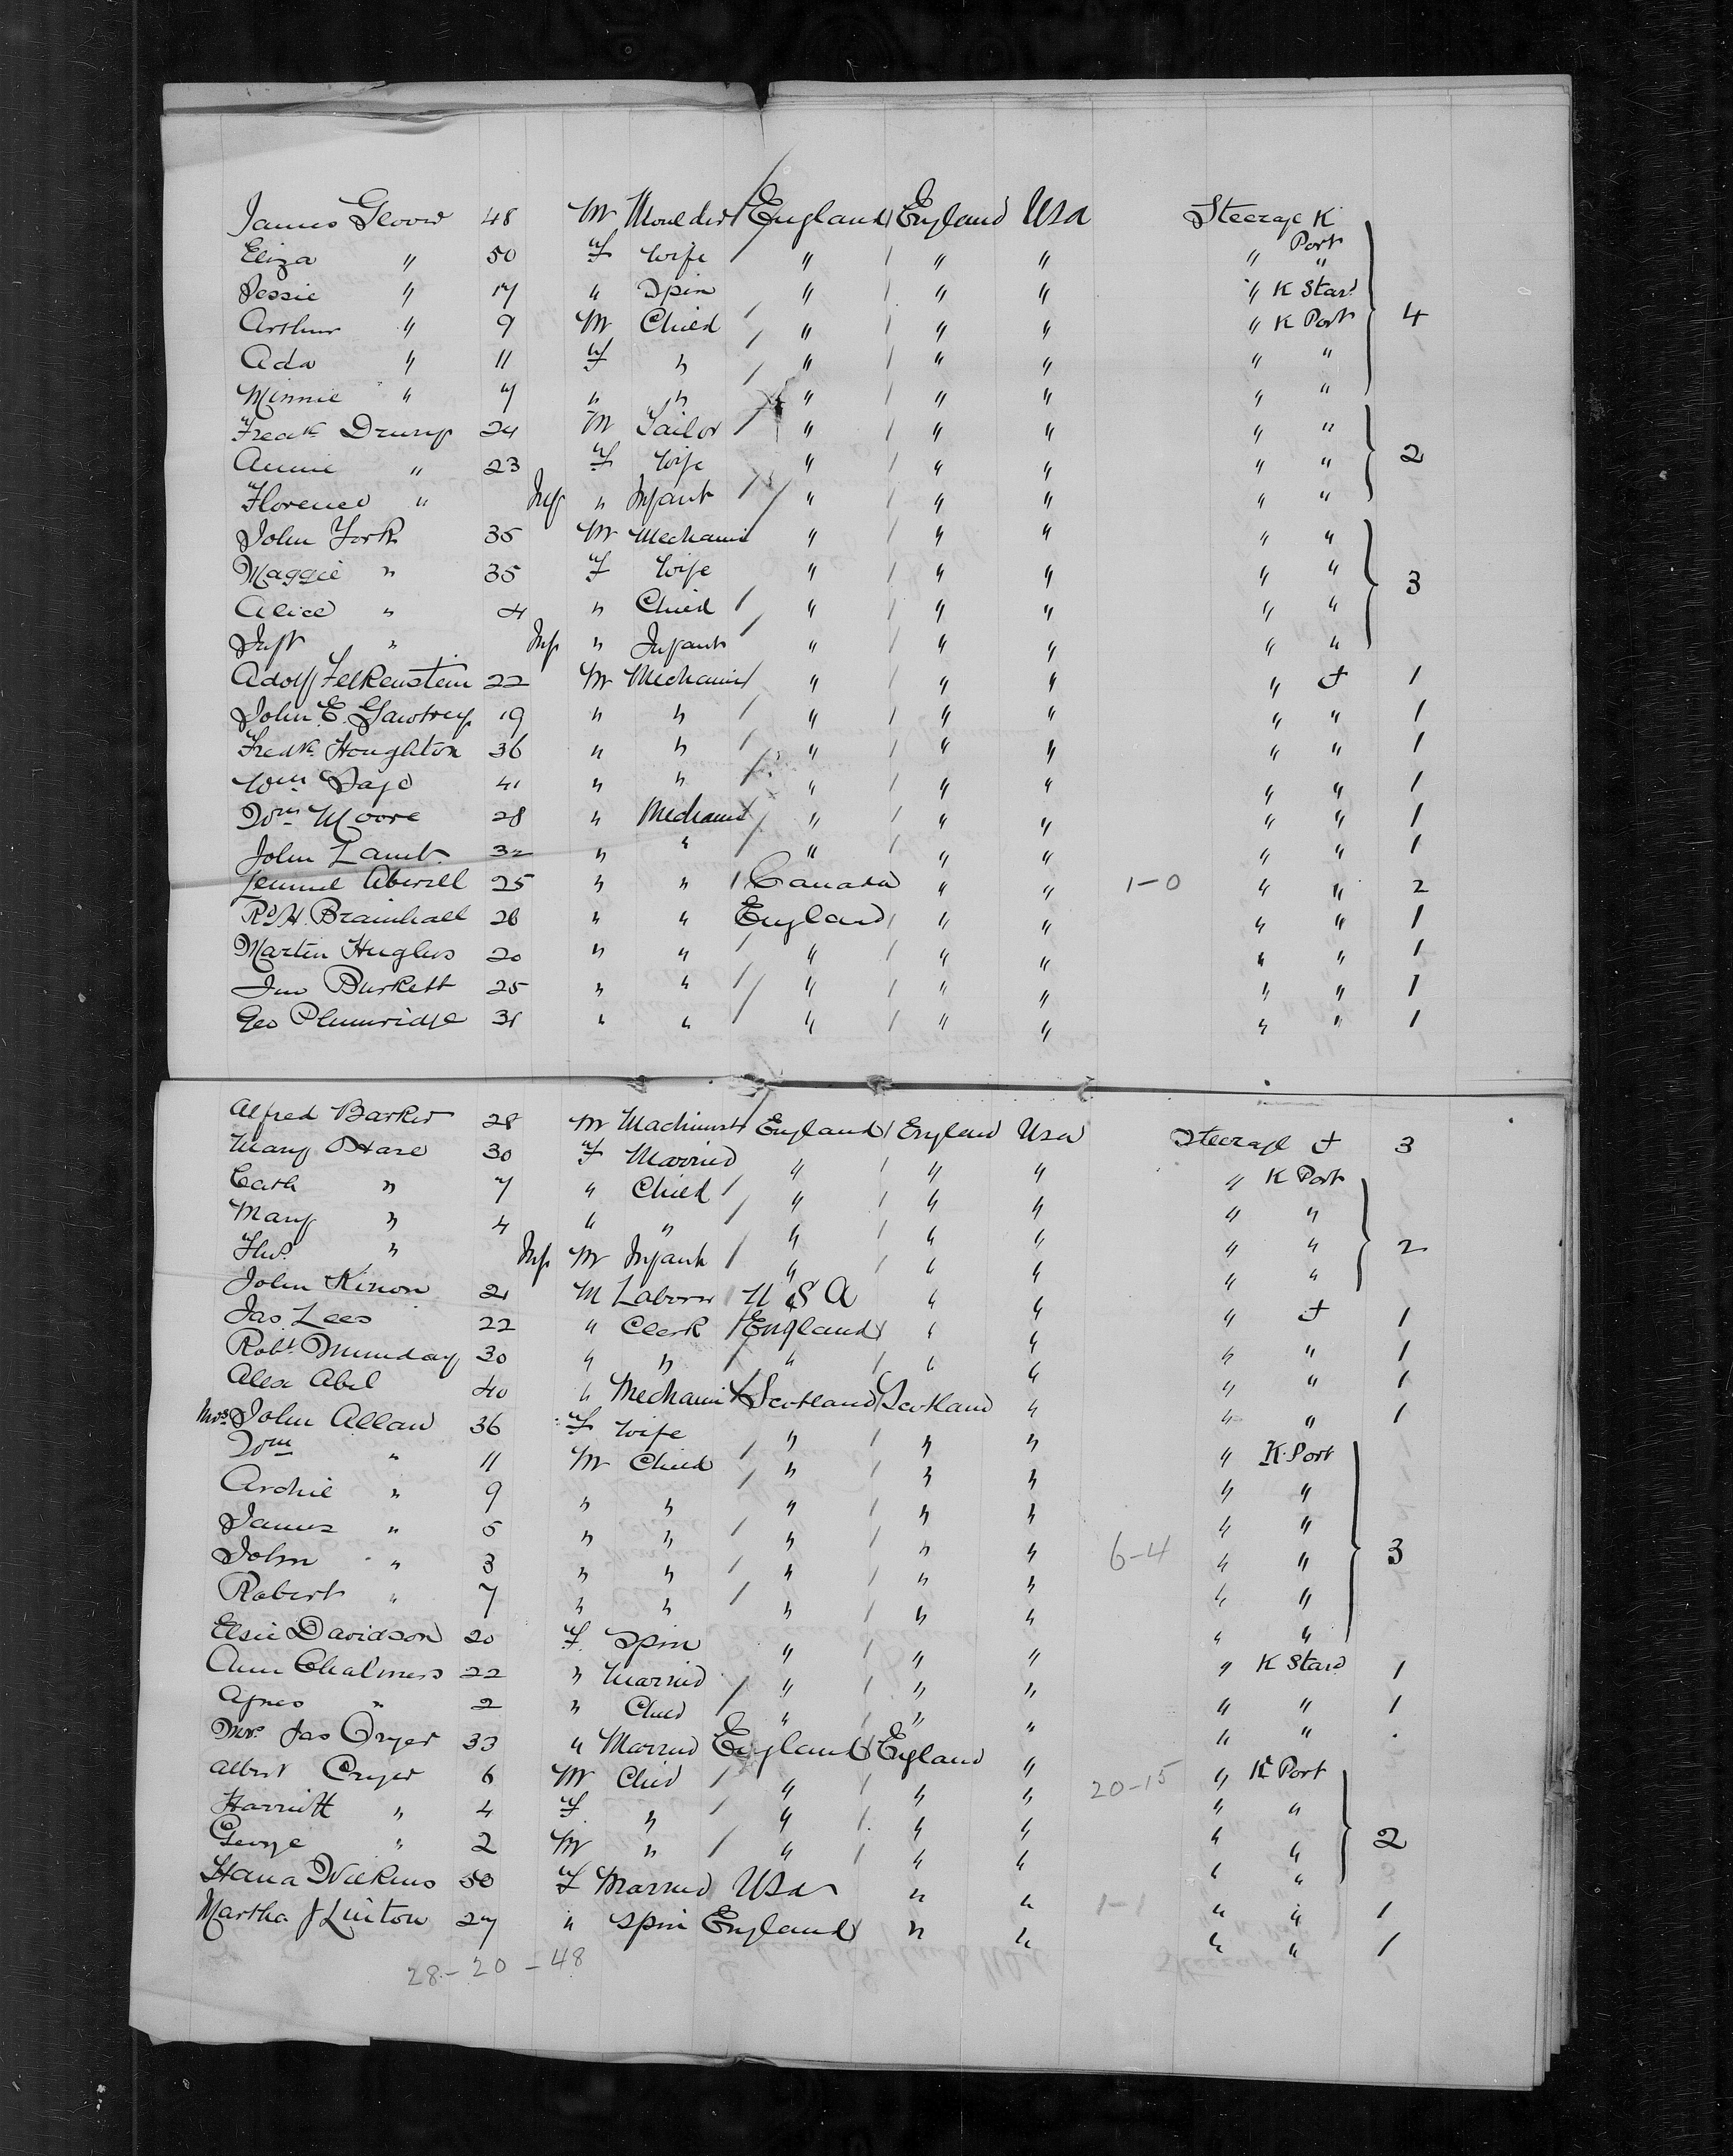 James Glover 48 M Moulder England England USA Steerage K Port
Eliza " 50 F Wife " " " " "
Jessie " 17 " Spin " " " " K Stard
Arthur " 9 M Child " " " " K Port 4
Ada " 11 F " " " " " "
Minnie " 7 " " " " " " "
Fredk Drury 24 M Tailor " " " " "
Annie " 23 F Wife " " " " " 2
Florence " Inf " Infant " " " " "
John York 35 M Mechanic " " " " "
Maggie " 35 F Wife " " " " "
Alice " 4 " Child " " " " " 3
Inft " Inf " Infant " " " " "
Adolf Felkenstein 22 M Mechanic " " " " J 1
John E. Gawtrey 19 " " " " " " " 1
Fredk Houghton 36 " " " " " " " 1
Wm Sage 41 " " " " " " " 1
Wm Moore 28 " Mechanic " " " " " 1
John Lamb 32 " " " " " " " 1
Lemuel Aberell 25 " " Canada " " 1-0 " " 2
Rd H. Bramhall 26 " " England " " " " 1
Martin Hughes 20 " " " " " " " 1
Jno Burkett 25 " " " " " " " 1
Geo Plumridge 31 " " " " " " " 1
Alfred Barker 28 M Machinist England England USA Steerage J 3
Mary OHare 30 F Married " " " " K Port
Cath " 7 " Child " " " " "
Mary " 4 " " " " " " " 2
Thos " Inf M Infant " " " " "
John Kinon 21 M Laborer U S A " " " J 1
Jas. Lees 22 " Clerk England " " " " 1
Robt Munday 30 " " " " " " " 1
Alex Abel 40 " Mechanic Scotland Scotland " " " 1
Mrs John Allan 36 F Wife " " " " K Port
Wm " 11 M Child " " " " "
Archie " 9 " " " " " " "
James " 5 " " " " " 6-4 " " 3
John " 3 " " " " " " "
Robert " 7 " " " " " " "
Elsie Davidson 20 F Spin " " " " K Stard 1
Ann Chalmers 22 " Married " " " " " 1
Agnes " 2 " Child " " " " "
Mrs Jas Cryer 33 " Married England England " 20-15 " K Port
Albert Cryer 6 M Child " " " " "
Harriett " 4 F " " " " " " 2
George " 2 M " " " " " "
Hana Wilkins 50 F Married USA " " 1-1 " " 1
Martha J Linton 27 " Spin England " " " " 1
28-20-48